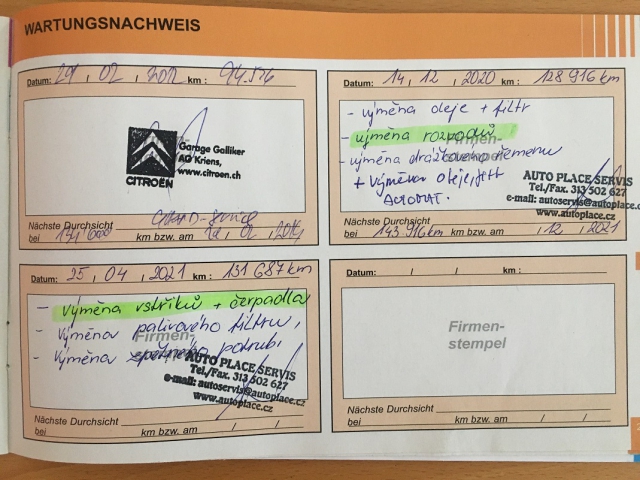 WARTUNGSNACHWEIS
Datum: 29, 02, 2012 km: 94.576
Garage Galliker
AG Kriens,
www.citroen.ch
CITROËN
Nächste Durchsicht
bei km bzw. am 02, 2014
Datum: 14, 12, 2020 km: 128 916 km
- výměna oleje + filtr
- výměna rozvodů
- výměna drážkového řemenu
+ výměna oleje, filtr
AUTOMAT.
Firmen-
stempel
AUTO PLACE SERVIS
Tel./Fax. 313 502 627
e-mail: autoservis@autoplace.c
www.autoplace.cz
Nächste Durchsicht
bei 143 916 km km bzw. am , 12, 2021
Datum: 25, 04, 2021 km: 131 687 km
- výměna vstřiků + čerpadla
- výměna palivového filtru,
- výměna zpětného potrubí
Firmen-
AUTO PLACE SERVIS
Tel./Fax. 313 502 627
e-mail: autoservis@autoplace.cz
www.autoplace.cz
Nächste Durchsicht
bei km bzw. am / /
Datum: / / km:
Firmen-
stempel
Nächste Durchsicht
bei km bzw. am / /